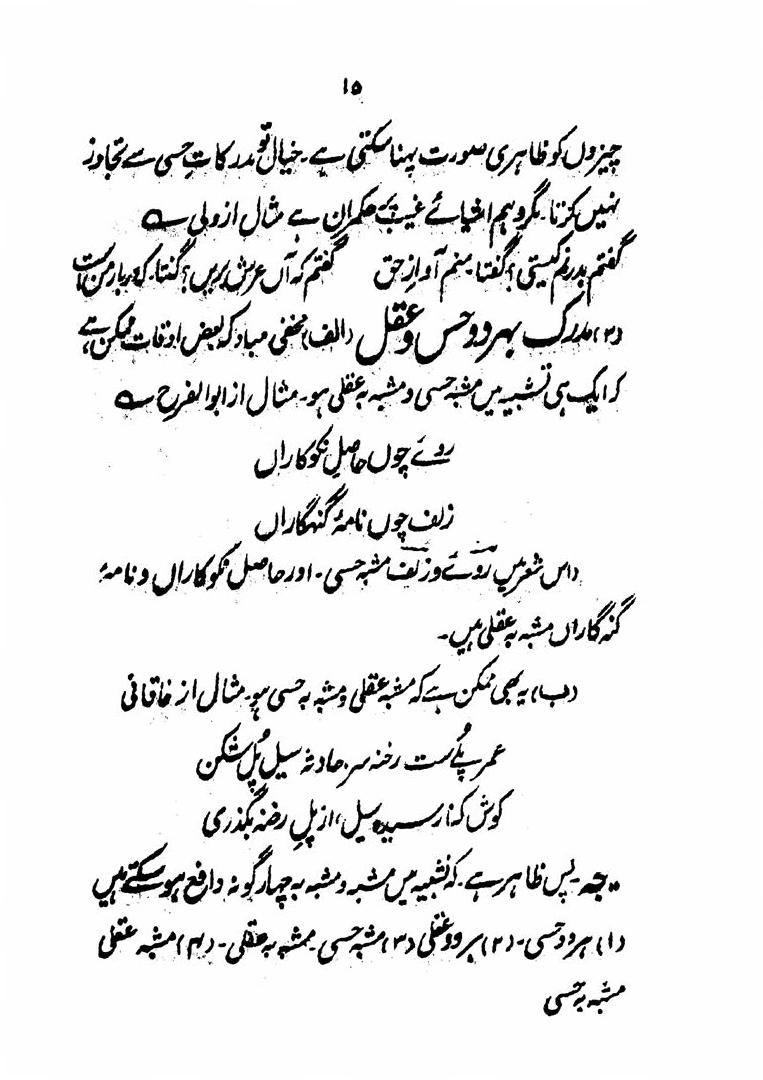 ۱۵
چیزوں کو ظاہری صورت پہنا سکتی ہے۔ خیال تو مدرکاتِ حسی سے تجاوز
نہیں کرتا۔ مگر وہم اشیائے غیب پر حکمران ہے مثال از ولی ؎
گفتم بدرنم کیستی؟ گفتا۔ منم آوازِ حق گفتم کہ آں عرش بریں؟ گفتا۔ کہ دربار من است
(۳) مدرک بہر دو حس و عقل (الف) مخفی مباد کہ بعض اوقات ممکن ہے
کہ ایک ہی تشبیہ میں مشبہ حسی و مشبہ بہ عقلی ہو۔ مثال از ابوالفرح ؎
روئے چوں حاصلِ نکوکاراں
زلف چوں نامۂ گنہگاراں
(اس شعر میں روئے و زلف مشبہ حسی۔ اور حاصل نکوکاراں و نامۂ
گنہ گاراں مشبہ بہ عقلی ہیں۔
(ب) یہ بھی ممکن ہے کہ مشبہ عقلی و مشبہ بہ حسی ہو۔ مثال از خاقانی
عمر پُلے ست رخنہ سر حادثہ سیل پُل شکن
کوش کہ نارسیدہ سیل، از پلِ رخنہ بگذری
پس ظاہر ہے۔ کہ تشبیہ میں مشبہ و مشبہ بہ چہار گونہ واقع ہو سکتے ہیں
(۱) ہر دو حسی۔ (۲) ہر دو عقلی (۳) مشبہ حسی۔ مشبہ بہ عقلی۔ (۴) مشبہ عقلی
مشبہ بہ حسی